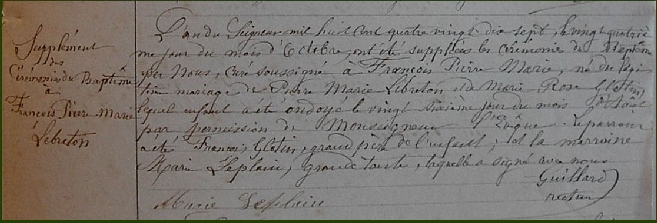 Supplément
des
Cérémonies du Baptême
à
François Pierre Marie
Lebreton
L'an du Seigneur mil huit cent quatre vingt dix sept, le vingt quatriè
me jour du mois d'Octobre, ont été suppléées les cérémonies du Baptême
par Nous, curé soussigné à François Pierre Marie, né du légi
time mariage de Pierre Marie Lebreton et de Marie Rose Glotin,
lequel enfant a été ondoyé le vingt sixième jour du mois d'Août
par permission de Monseigneur l'Evêque. Le parrain
a été François Glotin, grand père de l'enfant, et la marraine
Marie Leplain, grande tante, laquelle a signé avec nous
Guillard
recteur
Marie Leplain